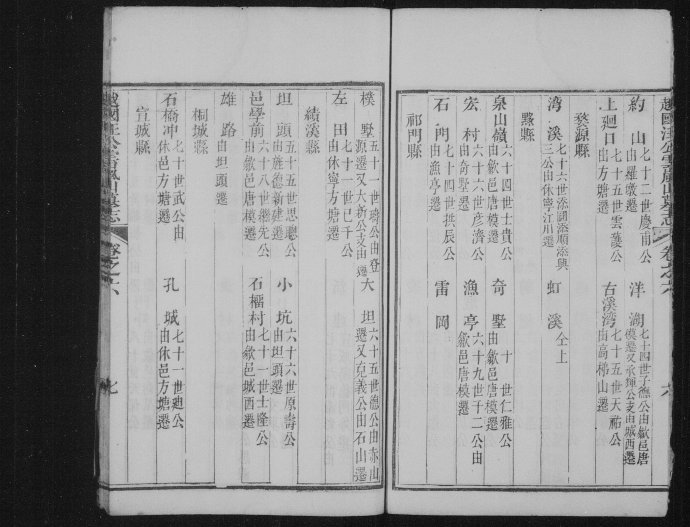 越國汪公雲嵐山墓志 卷之六 六
約山 七十二世慶甫公由羅墩遷 洋湖 七十四世子德公由歙邑唐模遷又永輝公支由城西遷
上廻口 七十五世雲護公由方塘遷 古溪灣 七十五世天祐公由高梯山遷
婺源縣
灣溪 七十六世添嗣添順添興三公由休寧江川遷 虹溪 仝上
黟縣
泉山嶺 六十四世士貴公由歙邑唐模遷 奇墅 十世仁雅公由歙邑唐模遷
宏村 六十六世彥濟公由奇墅遷 漁亭 六十九世千二公由歙邑唐模遷
石門 七十四世拱辰公由漁亭遷 雷岡
祁門縣
樸墅 五十一世瑞公由登源遷又大新公支由 遷 大坦 六十五世德公由赤山遷又克義公由石山遷
左田 七十一世已千公由休寧方塘遷
績溪縣
坦頭 五十五世思聰公由旌德新建遷 小坑 六十六世原壽公由坦頭遷
邑學前 六十八世繼先公由歙邑唐模遷 石樞村 七十一世士隆公由歙邑城西遷
雄路 由坦頭遷
桐城縣
石橋冲 七十世武公由休邑方塘遷 孔城 七十一世廸公由休邑方塘遷
宣城縣
越國汪公雲嵐山墓志 卷之六 七